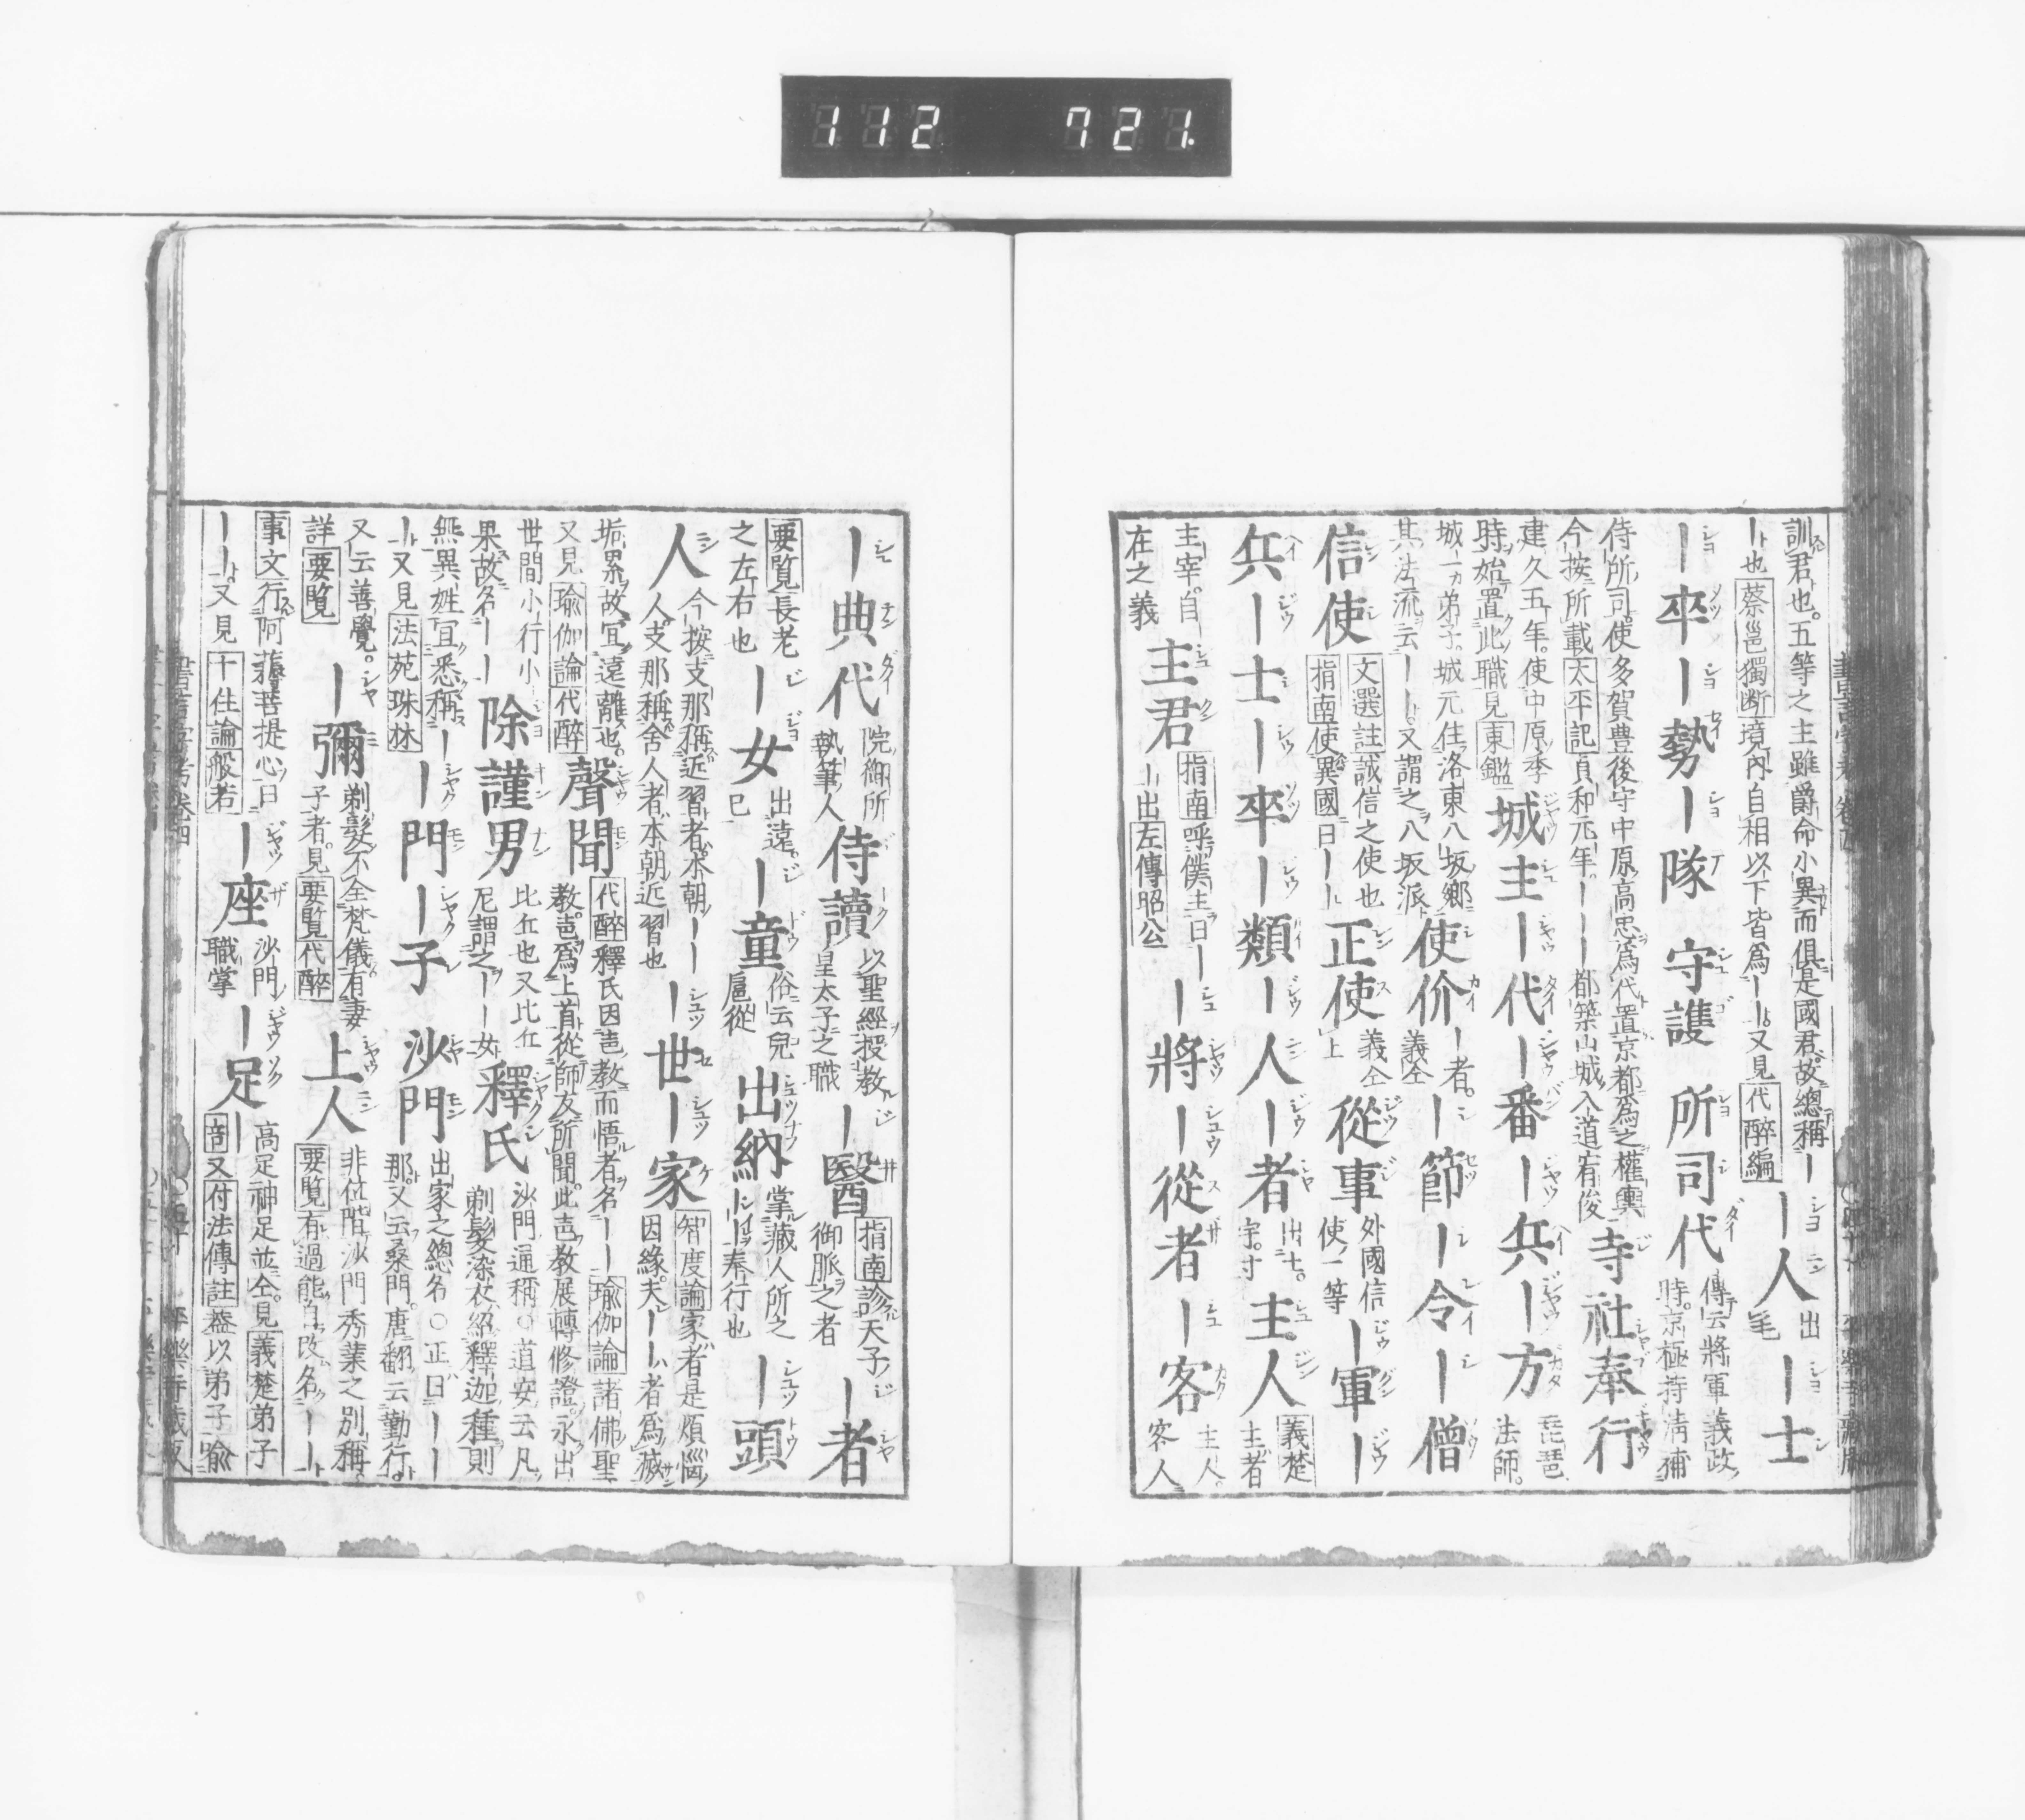 112 721.
訓君也。五等之主雖爵命小異而俱是國君。故總稱
｜也蔡邕獨斷境內自相以下皆爲｜｜。又見代醉編｜人出｜士
｜卒｜勢｜隊守護所司代傳云將軍義政時。京極持淸補
侍所司使多賀豊後守中原高忠爲代置京都爲之權輿
今按所載太平記貞和元年。｜｜｜都築山城入道宥俊寺社奉行
建久五年。使中原季時始置此職見東鑑城主｜代｜番｜兵｜方琵琶法師。
城一弟子。城元住洛東八坂鄕其法流云｜｜。又謂之八坂派使价｜者。義仝｜節｜令｜僧
信使文選註誠信之使也指南使異國曰｜｜正使義仝上從事外國信使一等｜軍｜
兵｜士｜卒｜類｜人｜者主人義楚主者
主宰。自在之義主君指南呼僕主曰｜｜出左傳昭公｜將｜從者｜客主人。客人
｜典代院御所執筆人侍讀以聖經授教皇太子之職｜醫指南診天子御脈之者｜者
要覧長老之左右也｜女出遠｜童俗云兒扈從出納掌藏人所之｜｜奉行也｜頭
人今按支那稱近習者。本朝｜｜人支那稱舍人者本朝近習也｜世｜家智度論家者是煩惱因緣。夫｜｜者爲滅
垢累故宜遠離也。又見瑜伽論代醉聲聞代醉釋氏因教而悟者名｜｜瑜伽論諸佛聖教爲上首從師友所聞此教展轉修證。永出
世間小行小果故名｜｜除謹男比丘也又比丘尼謂之｜｜女釋氏沙門通稱○道安云凡剃髮染衣紹釋迦種則
無異姓宜悉稱｜｜又見法苑珠林｜門｜子沙門出家之總名○正曰｜｜那又云桑門。唐翻云勤行。
又云善覺。詳要覧｜彌剃髮不全梵儀有妻子者見要覧代醉上人非位階沙門秀業之別稱。要覧有過能自改名｜｜
事文行阿耨菩提心曰｜｜。又見十住論般若｜座沙門職掌｜足高足神足並仝。見義楚弟子｜又付法傳註蓋以弟子喩